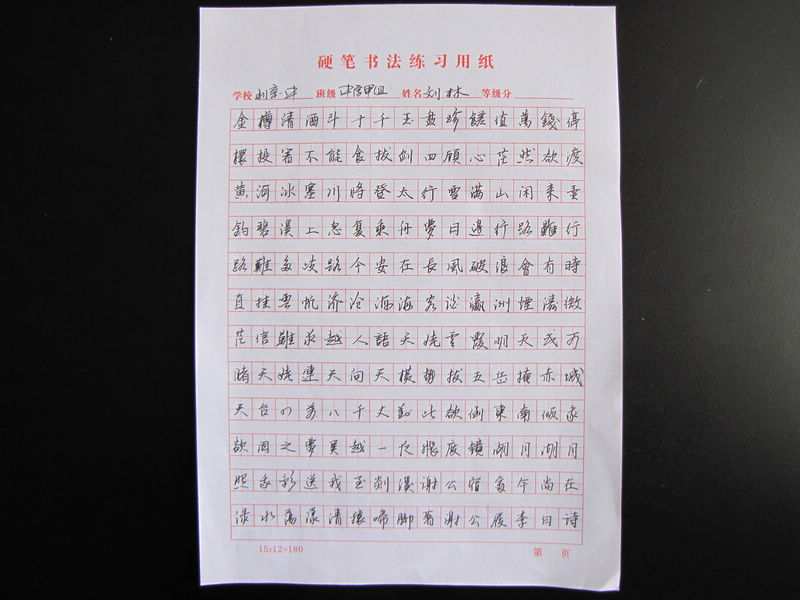 硬笔书法练习用纸
学校 班级 中学甲组 姓名 刘林 等级分
金樽清酒斗十千玉盘珍饈值萬錢停
杯投箸不能食拔剑四顾心茫然欲渡
黄河冰塞川将登太行雪满山闲来垂
钓碧溪上忽复乘舟夢日邊行路難行
路難多歧路今安在長風破浪會有時
直挂雲帆济沧海海客谈瀛洲煙濤微
茫信難求越人語天姥雲霞明灭或可
睹天姥連天向天横势拔五岳掩赤城
天台四万八千丈對此欲倒東南倾我
欲因之夢吴越一夜飛度镜湖月湖月
照我影送我至剡溪谢公宿處今尚在
渌水荡漾清猿啼脚著谢公屐李白诗
15×12=180
第 页